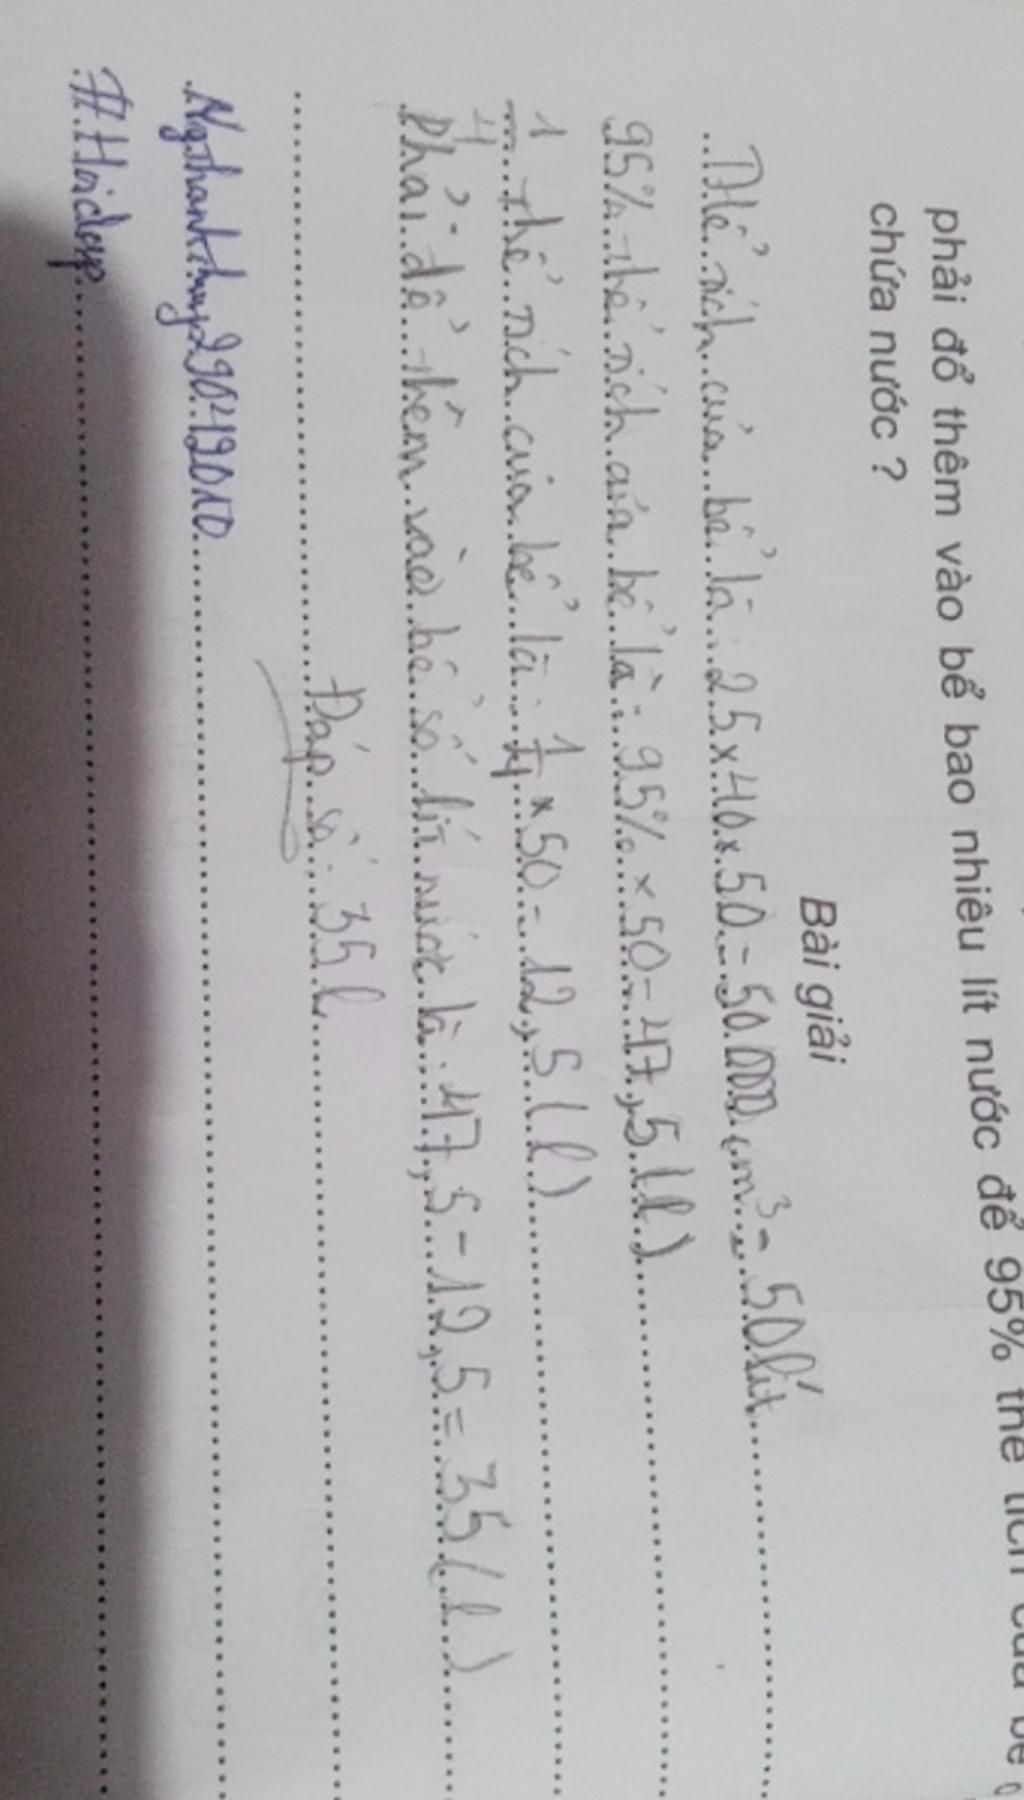 phải đổ thêm vào bể bao nhiêu lít nước để 95% thể tích của bể
chứa nước ?
Bài giải
Thể tích của bể là: 25 x 40 x 50 = 50.000 cm³ = 50 lít
95% thể tích của bể là: 95% x 50 = 47,5 (l)
1/4 thể tích của bể là: 1/4 x 50 = 12,5 (l)
Phải đổ thêm vào bể số lít nước là: 47,5 - 12,5 = 35 (l)
Đáp số: 35 l
Ngthanhthuy29042010
#Hoidap